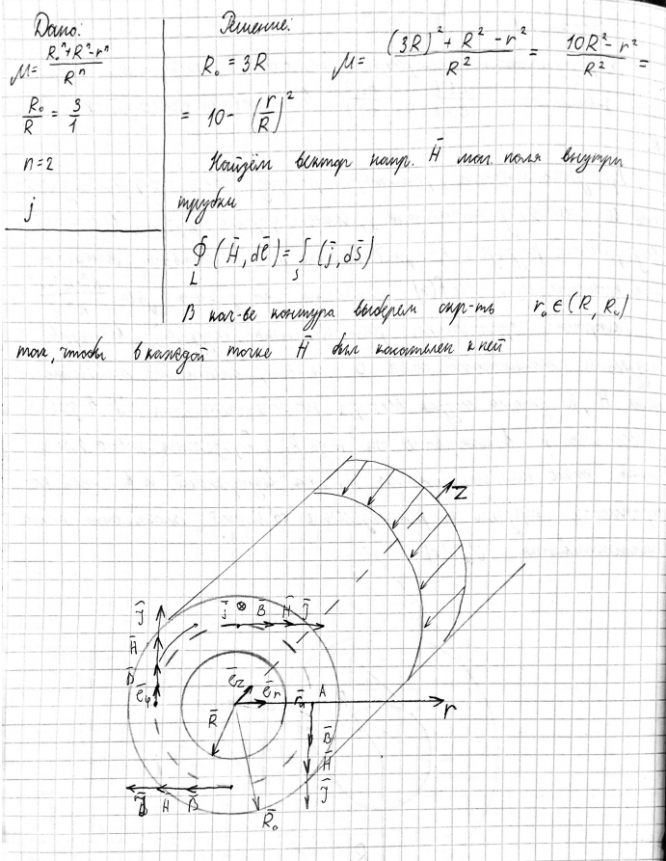 Дано:
μ = (R₀ⁿ + Rⁿ - rⁿ) / Rⁿ
R₀/R = 3/1
n = 2
j
Решение:
R₀ = 3R μ = ((3R)² + R² - r²) / R² = (10R² - r²) / R² =
= 10 - (r/R)²
Найдём вектор напр. H̄ маг. поля внутри
трубки
∮_L (H̄, dℓ̄) = ∫_S (j̄, ds̄)
В кач-ве контура выберем окр-ть r₀ ∈ (R, R₀)
так, чтобы в каждой точке H̄ был касателен к ней
z
J̄
H̄
B̄
ē_φ
j̄ ⊗ B̄ H̄ J̄
ē_z
ē_r
A
r
R̄
B̄
H̄
J̄
H̄ B̄
R̄₀